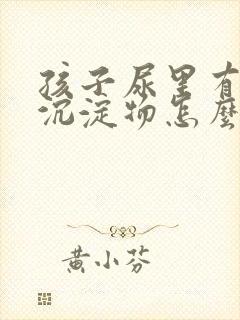 孩子尿里有
沉淀物怎麽
黄小芬